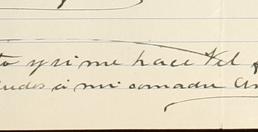 to y si me hace tel
ludes á mi comadre